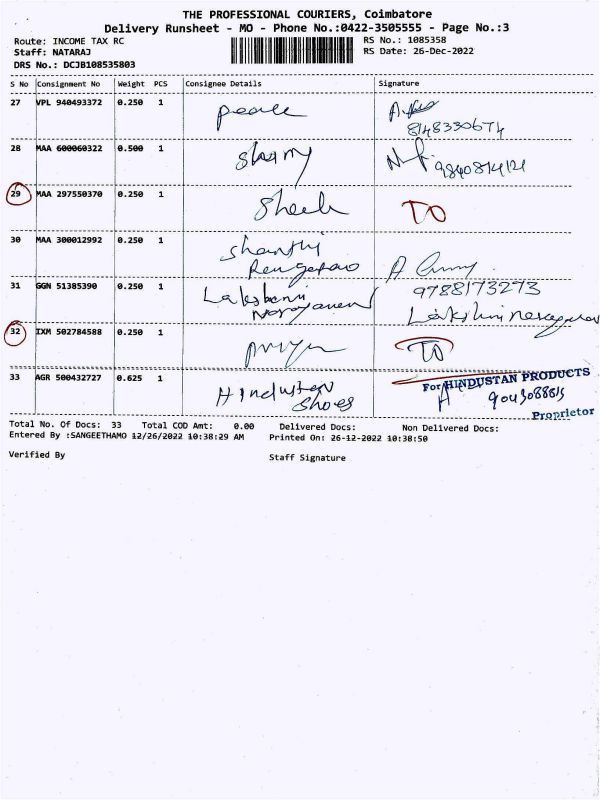 THE PROFESSIONAL COURIERS, Coimbatore
Delivery Runsheet - MO - Phone No.:0422-3505555 - Page No.:3
Route: INCOME TAX RC RS No.: 1085358
Staff: NATARAJ RS Date: 26-Dec-2022
DRS No.: DCJB108535803
S No Consignment No Weight PCS Consignee Details Signature
27 VPL 940493372 0.250 1
8148330674
28 MAA 600060322 0.500 1
9840814121
29 MAA 297550370 0.250 1 TO
30 MAA 300012992 0.250 1 Shanthi
31 GGN 51385390 0.250 1 9788173273
Lakshmi
32 IXM 502784588 0.250 1 TO
33 AGR 500432727 0.625 1 Hindustan Shoes
For HINDUSTAN PRODUCTS
Proprietor
Total No. Of Docs: 33 Total COD Amt: 0.00 Delivered Docs: Non Delivered Docs:
Entered By :SANGEETHAMO 12/26/2022 10:38:29 AM Printed On: 26-12-2022 10:38:50
Verified By Staff Signature